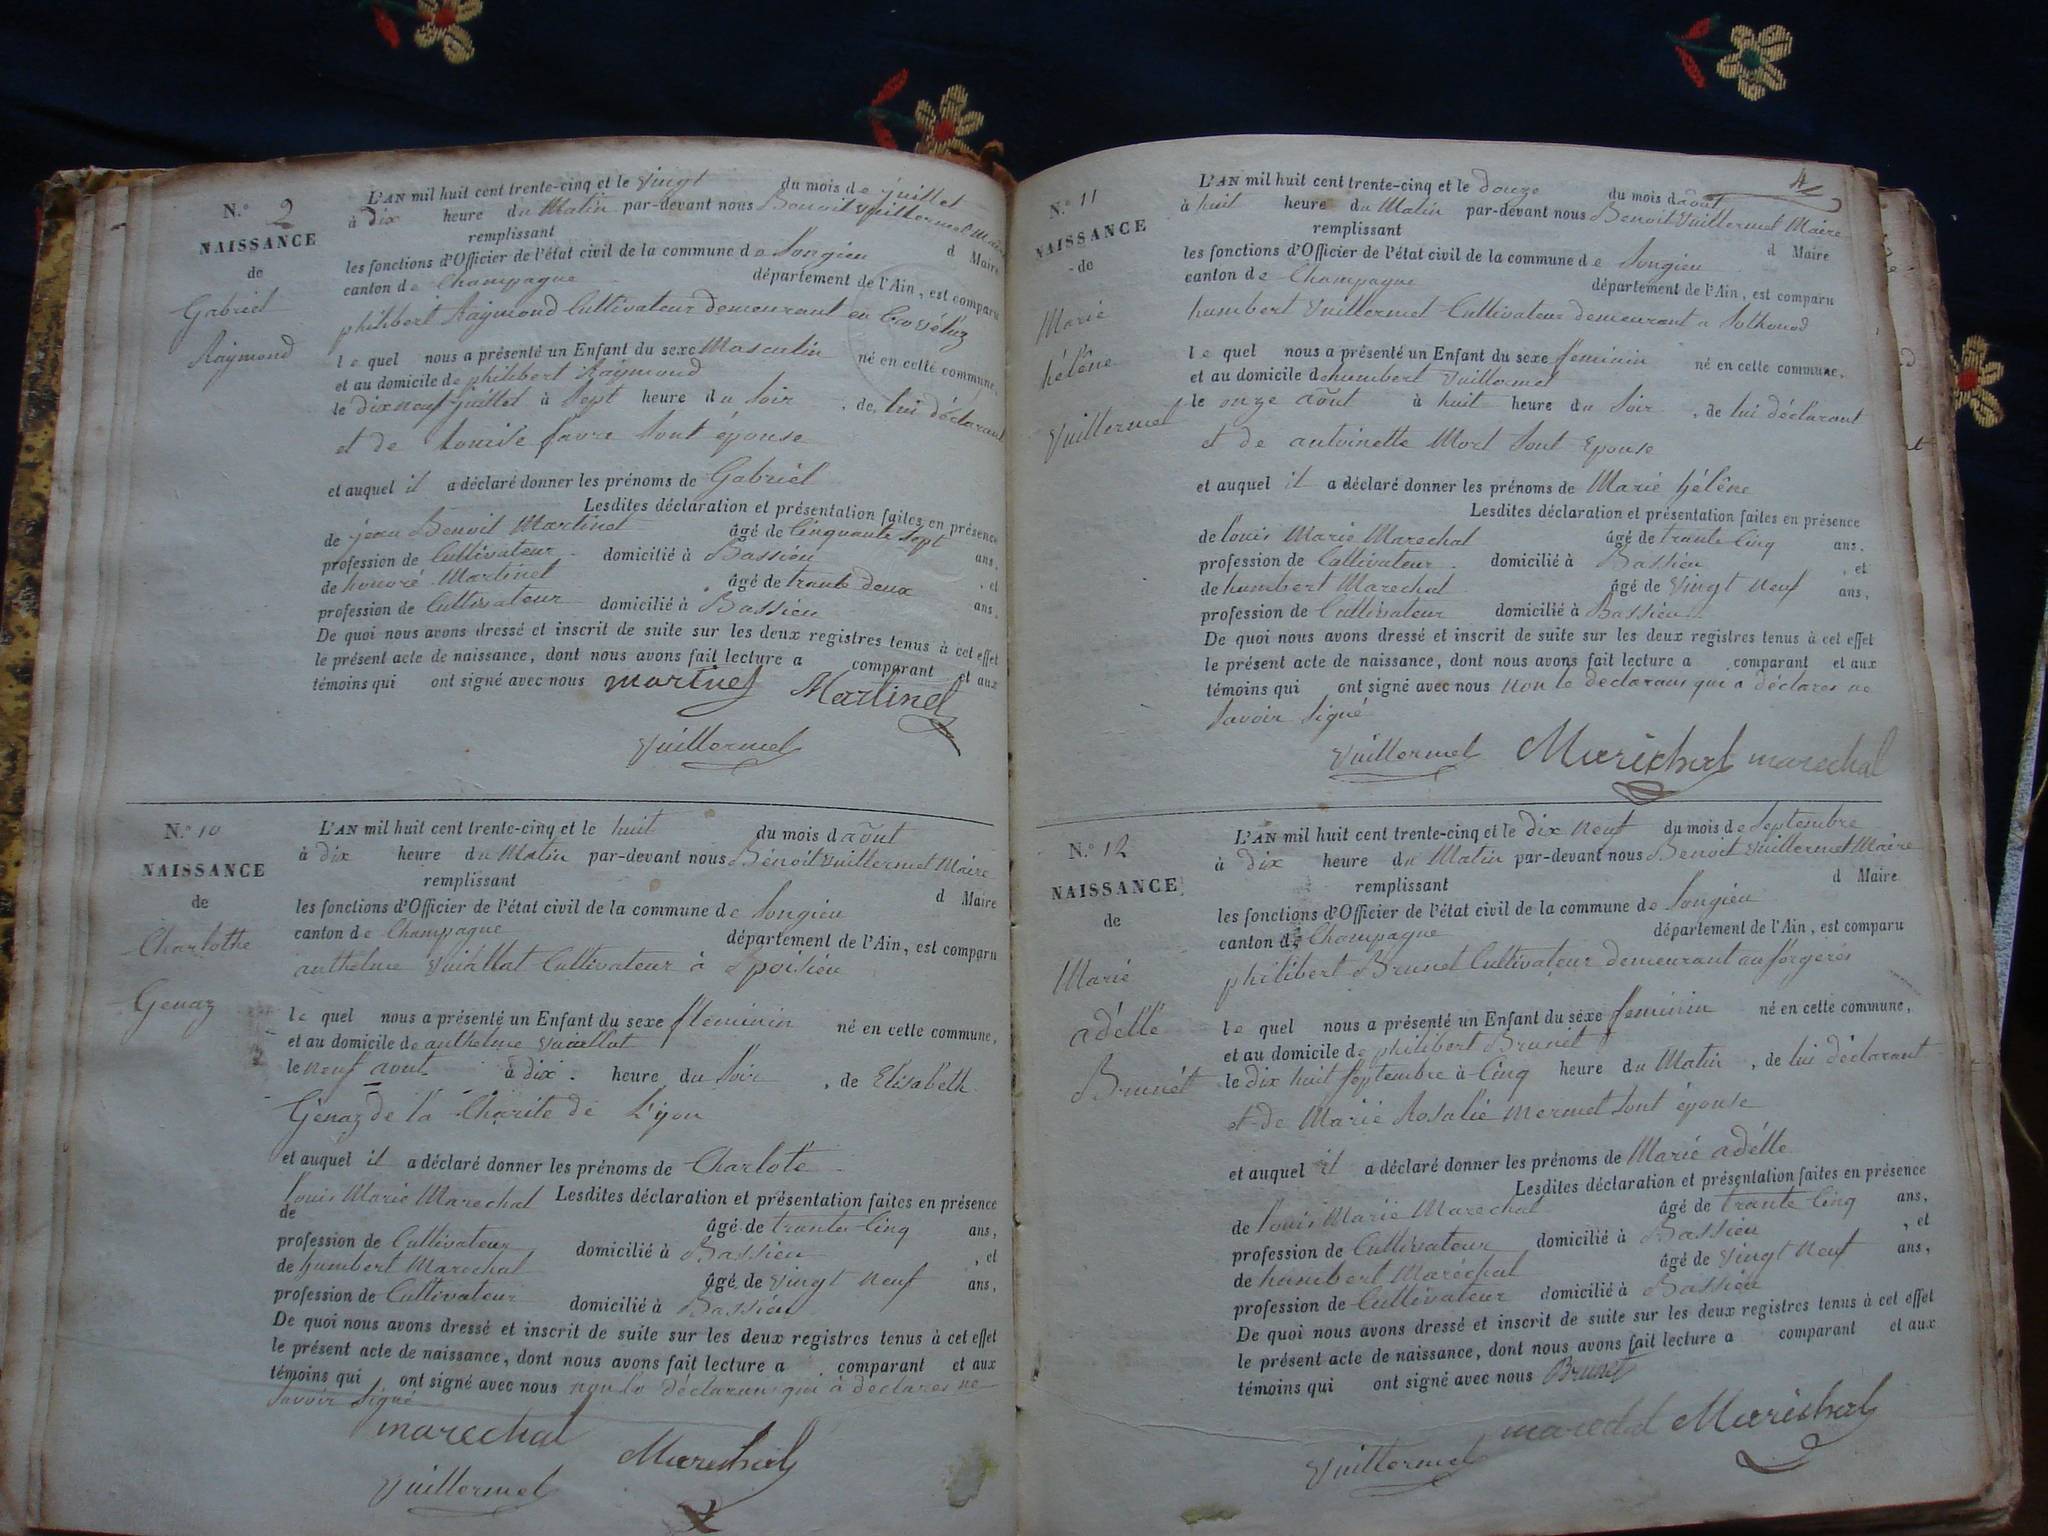 N.° 2
NAISSANCE
de
Gabriel
Raymond
L'AN mil huit cent trente-cinq et le vingt du mois de juillet
à Dix heure du Matin par-devant nous Benoit Vuillermet Maire
remplissant d Maire
les fonctions d'Officier de l'état civil de la commune de Songieu
canton de Champagne département de l'Ain, est comparu
philibert Raymond Cultivateur demeurant en
le quel nous a présenté un Enfant du sexe Masculin né en cette commune,
et au domicile de philibert Raymond
le dix neuf juillet à Sept heure du Soir, de lui déclarant
et de Louise favre Sont épouse
et auquel il a déclaré donner les prénoms de Gabriél
Lesdites déclaration et présentation faites en présence
de jean Benoit Martinet âgé de Cinquante Sept ans,
profession de Cultivateur domicilié à Bassieu, et
de honoré Martinet âgé de trante deux ans,
profession de Cultivateur domicilié à Bassieu
De quoi nous avons dressé et inscrit de suite sur les deux registres tenus à cet effet
le présent acte de naissance, dont nous avons fait lecture a comparant et aux
témoins qui ont signé avec nous martinet Martinet
Vuillermet
N.° 10
NAISSANCE
de
Charlothe
Genaz
L'AN mil huit cent trente-cinq et le huit du mois d août
à dix heure du Matin par-devant nous Bénoit Vuillermet Maire
remplissant d Maire
les fonctions d'Officier de l'état civil de la commune de Songieu
canton de Champagne département de l'Ain, est comparu
anthelme Vuillat Cultivateur à
le quel nous a présenté un Enfant du sexe feminin né en cette commune,
et au domicile de anthelme Vuillat
le neuf aout à dix heure du Soir, de Elisabeth
Genaz de la Charite de Lyon
et auquel il a déclaré donner les prénoms de Charlote
Louis Marie Marechal Lesdites déclaration et présentation faites en présence
de âgé de trante Cinq ans,
profession de Cultivateur domicilié à Bassieu, et
de humbert Marechal âgé de vingt neuf ans,
profession de Cultivateur domicilié à Bassieu
De quoi nous avons dressé et inscrit de suite sur les deux registres tenus à cet effet
le présent acte de naissance, dont nous avons fait lecture a comparant et aux
témoins qui ont signé avec nous non le déclarans qui à déclares ne
Savoir Signé
marechal Marechal
Vuillermet
4
N.° 11
NAISSANCE
de
Marie
hélêne
Vuillermet
L'AN mil huit cent trente-cinq et le douze du mois d août
à huit heure du Matin par-devant nous Benoit Vuillermet Maire
remplissant d Maire
les fonctions d'Officier de l'état civil de la commune de Songieu
canton de Champagne département de l'Ain, est comparu
humbert Vuillermet Cultivateur demeurant a Sothonod
le quel nous a présenté un Enfant du sexe feminin né en cette commune,
et au domicile de humbert Vuillermet
le onze août à huit heure du Soir, de lui déclarant
et de antoinette Mort Sont Epouse
et auquel il a déclaré donner les prénoms de Marie hélêne
Lesdites déclaration et présentation faites en présence
de Louis Marie Marechal âgé de trante Cinq ans,
profession de Cultivateur domicilié à Bassieu, et
de humbert Marechal âgé de Vingt neuf ans,
profession de Cultivateur domicilié à Bassieu
De quoi nous avons dressé et inscrit de suite sur les deux registres tenus à cet effet
le présent acte de naissance, dont nous avons fait lecture a comparant et aux
témoins qui ont signé avec nous non le declarans qui a déclares ne
Savoir Signé
Vuillermet Marechal marechal
N.° 12
NAISSANCE
de
Marie
adélle
Brunét
L'AN mil huit cent trente-cinq et le dix neuf du mois de Septembre
à dix heure du Matin par-devant nous Benoit Vuillermet Maire
remplissant d Maire
les fonctions d'Officier de l'état civil de la commune de Songieu
canton de Champagne département de l'Ain, est comparu
philibert Brunet Cultivateur demeurant au forgerés
le quel nous a présenté un Enfant du sexe feminin né en cette commune,
et au domicile de philibert Brunet
le dix huit Septembre à Cinq heure du Matin, de lui déclarant
et de Marie Rosalie mermet Sont épouse
et auquel il a déclaré donner les prénoms de Marie adélle
Lesdites déclaration et présentation faites en présence
de Louis Marie Marechal âgé de trante Cinq ans,
profession de Cultivateur domicilié à Bassieu, et
de humbert Maréchal âgé de vingt neuf ans,
profession de Cultivateur domicilié à Bassieu
De quoi nous avons dressé et inscrit de suite sur les deux registres tenus à cet effet
le présent acte de naissance, dont nous avons fait lecture a comparant et aux
témoins qui ont signé avec nous Brunet
marechal Marechal
Vuillermet